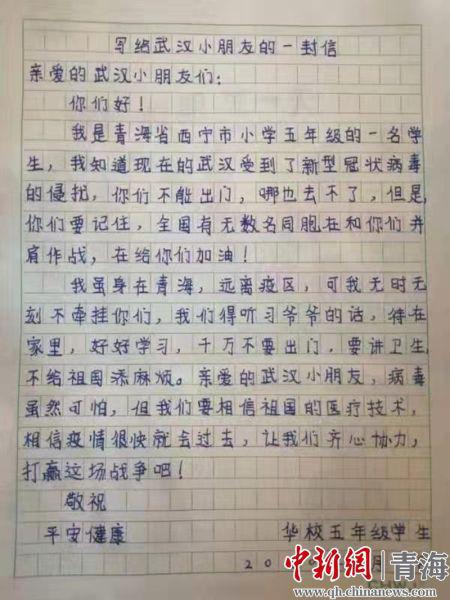 写给武汉小朋友的一封信
亲爱的武汉小朋友们：
你们好！
我是青海省西宁市小学五年级的一名学
生，我知道现在的武汉受到了新型冠状病毒
的侵扰，你们不能出门，哪也去不了，但是，
你们要记住，全国有无数名同胞在和你们并
肩作战，在给你们加油！
我虽身在青海，远离疫区，可我无时无
刻不牵挂你们，我们得听习爷爷的话，待在
家里，好好学习，千万不要出门，要讲卫生，
不给祖国添麻烦。亲爱的武汉小朋友，病毒
虽然可怕，但我们要相信祖国的医疗技术，
相信疫情很快就会过去，让我们齐心协力，
打赢这场战争吧！
敬祝
平安健康 华校五年级学生
20
中新网 青海
www.qh.chinanews.com